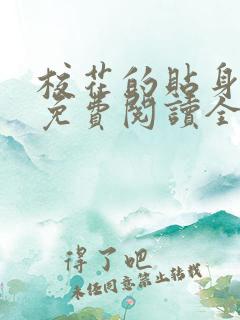 校花的貼身
免費閱讀全
得了吧
未经同意禁止转载